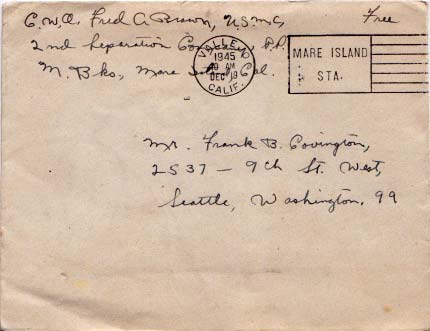 C.W.O. Fred A. Brown, U.S.M.C. Free
2nd Separation Co., P.P.
M. Bks., Mare Cal.
VALLEJO
1945
AM
DEC 19
CALIF.
MARE ISLAND
STA.
Mr. Frank B. Covington,
2537 - 9th St. West,
Seattle, Washington. 99